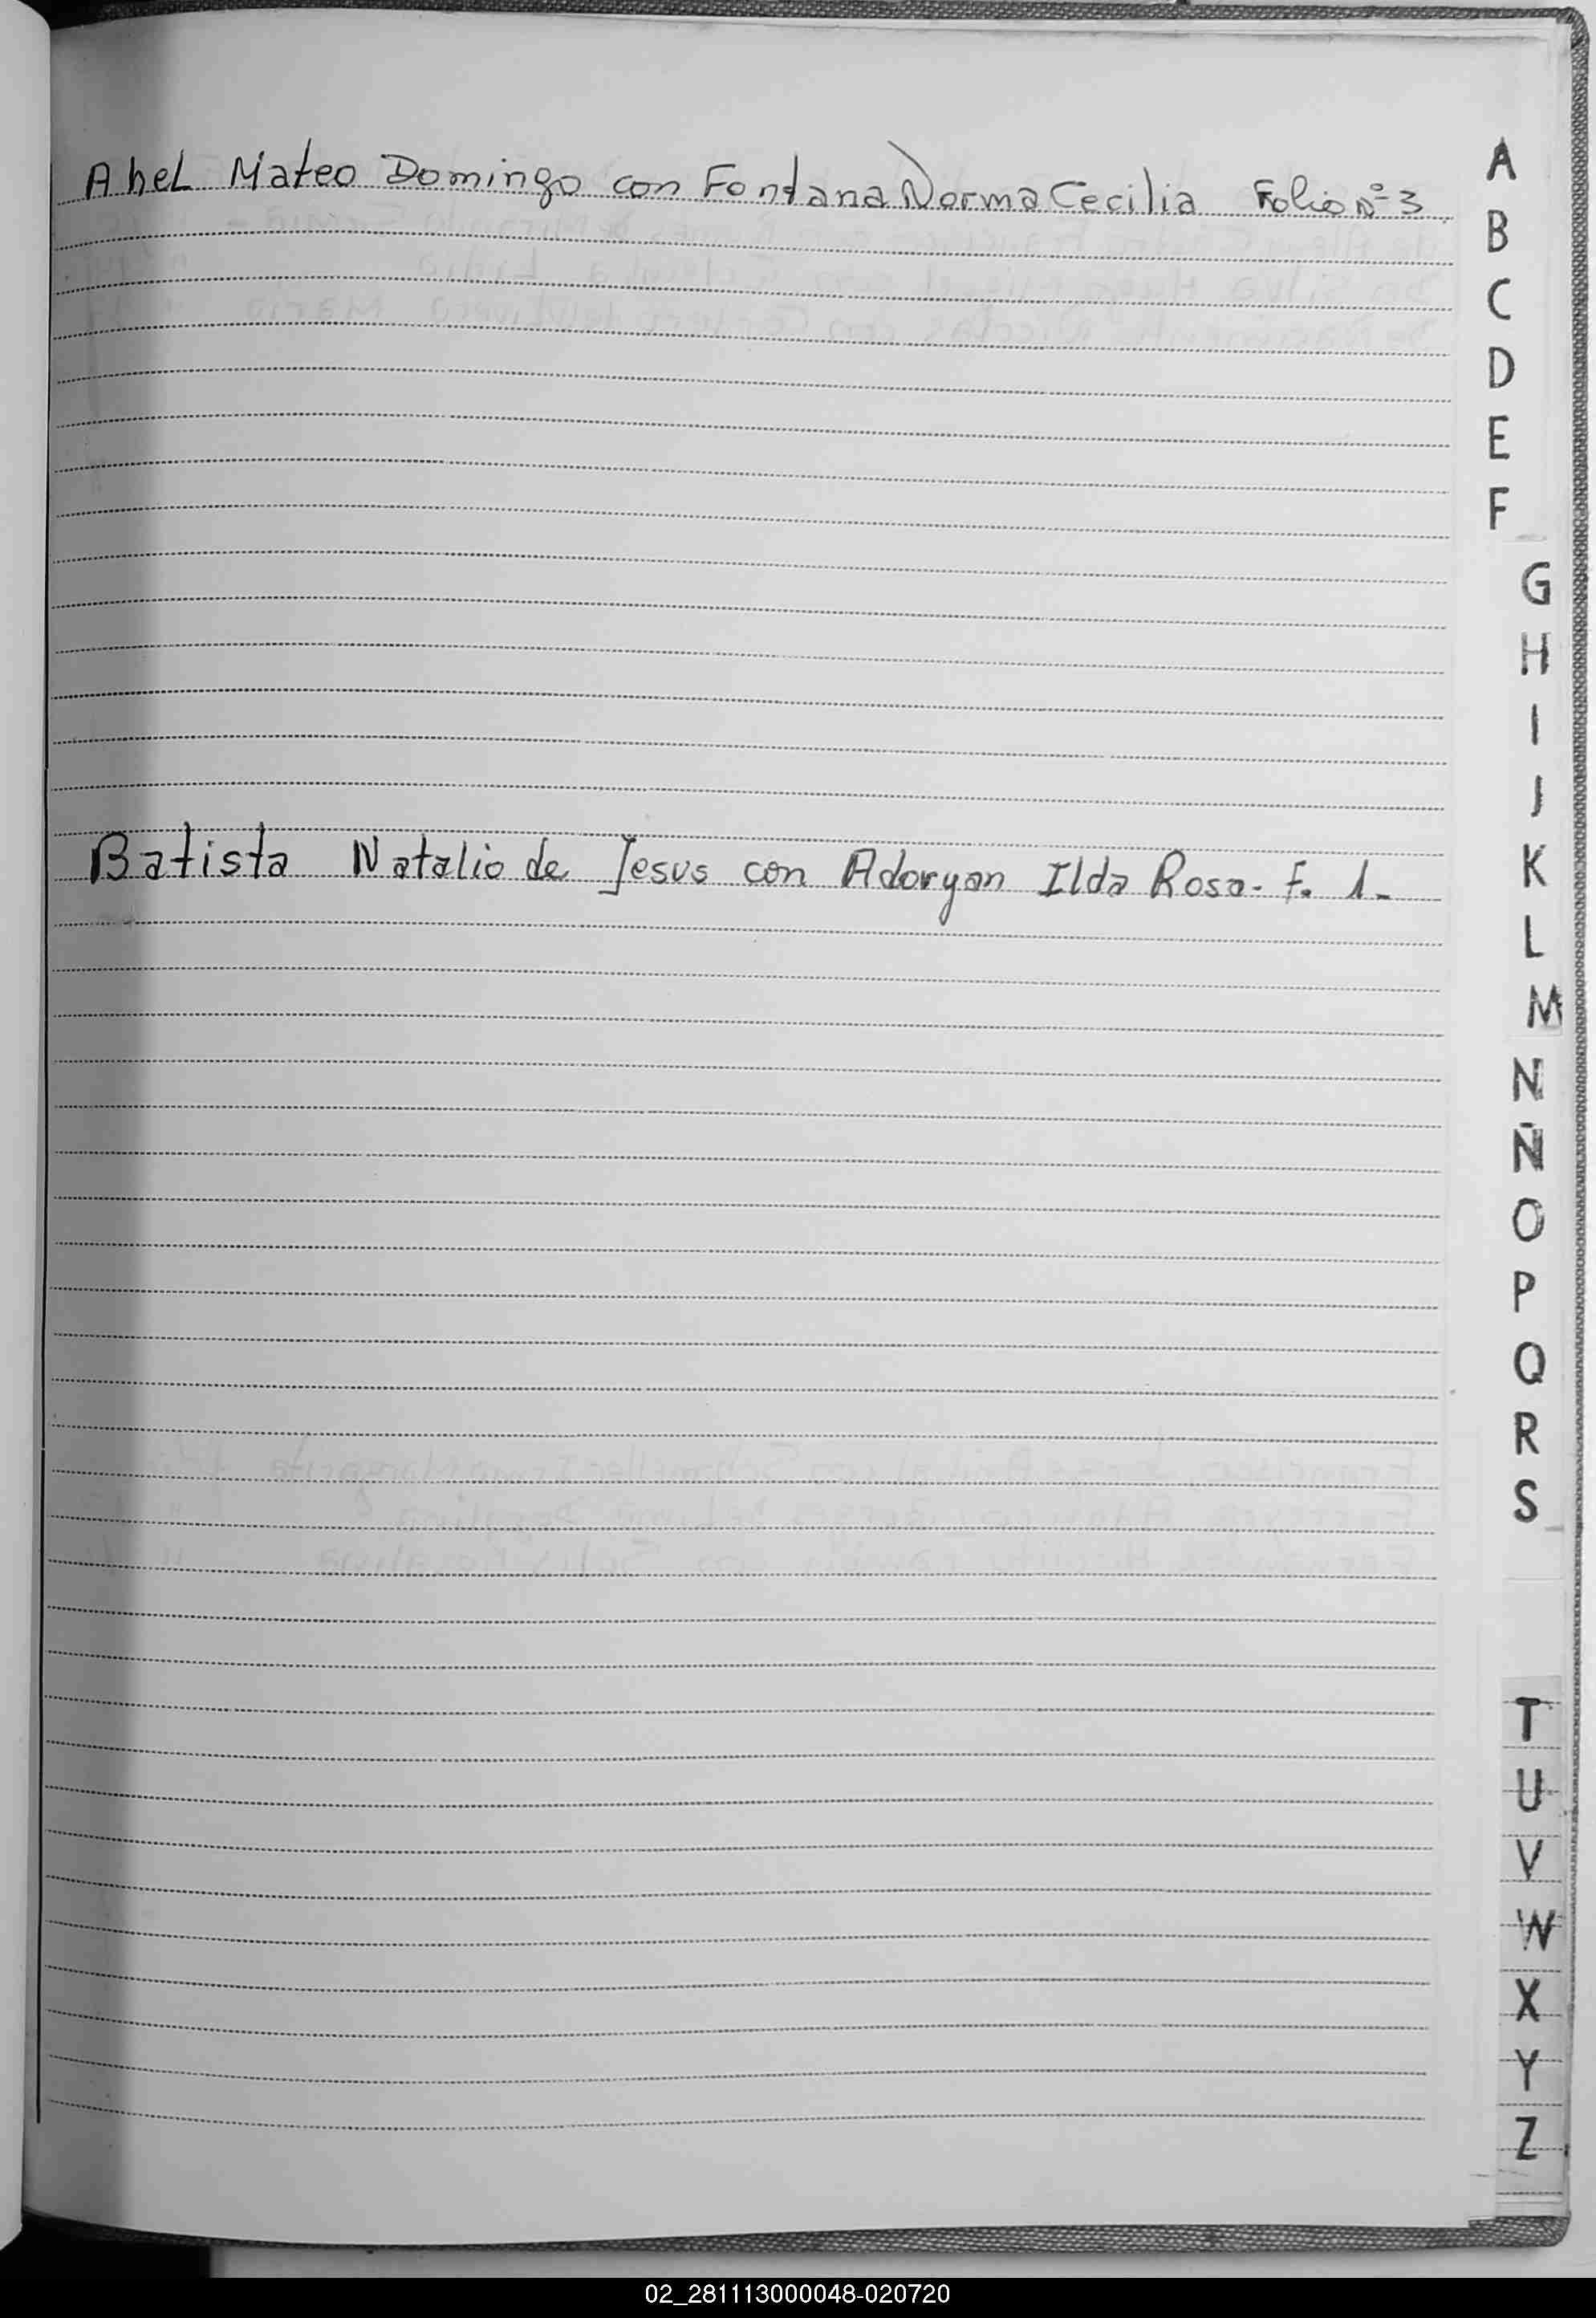 Ahel Mateo Domingo con Fontana Norma Cecilia Folio Nº 3
Batista Natalio de Jesus con Adoryan Ilda Rosa- F. 1-
A
B
C
D
E
F
G
H
I
J
K
L
M
N
Ñ
O
P
Q
R
S
T
U
V
W
X
Y
Z
02_281113000048-020720